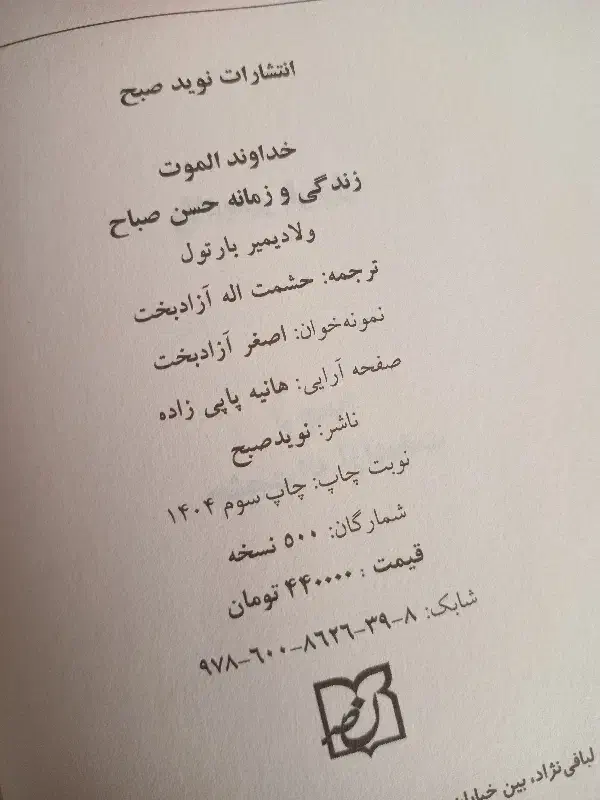 انتشارات نوید صبح
خداوند الموت
زندگی و زمانه حسن صباح
ولادیمیر بارتول
ترجمه: حشمت اله آزادبخت
نمونه‌خوان: اصغر آزادبخت
صفحه آرایی: هانیه پاپی زاده
ناشر: نویدصبح
نوبت چاپ: چاپ سوم ۱۴۰۴
شمارگان: ۵۰۰ نسخه
قیمت : ۴۴۰۰۰۰ تومان
شابک: ۸-۳۹-۸۶۲۶-۶۰۰-۹۷۸
لبافی‌نژاد، بین